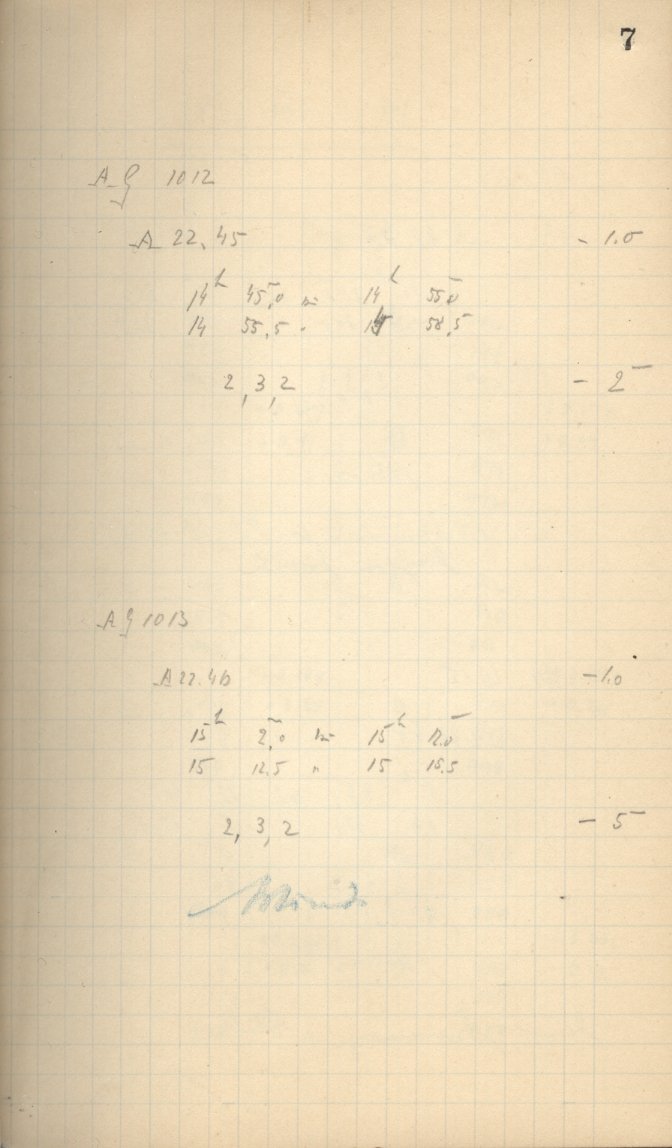 7
A G 1012
A 22.45 - 1.0
14h 45m,0 bis 14h 55m,0
14 55,5 " 14 58,5
2, 3, 2 - 2m
A G 1013
A 22.46 - 1.0
15h 2m,0 bis 15h 12m,0
15 12.5 " 15 15.5
2, 3, 2 - 5m